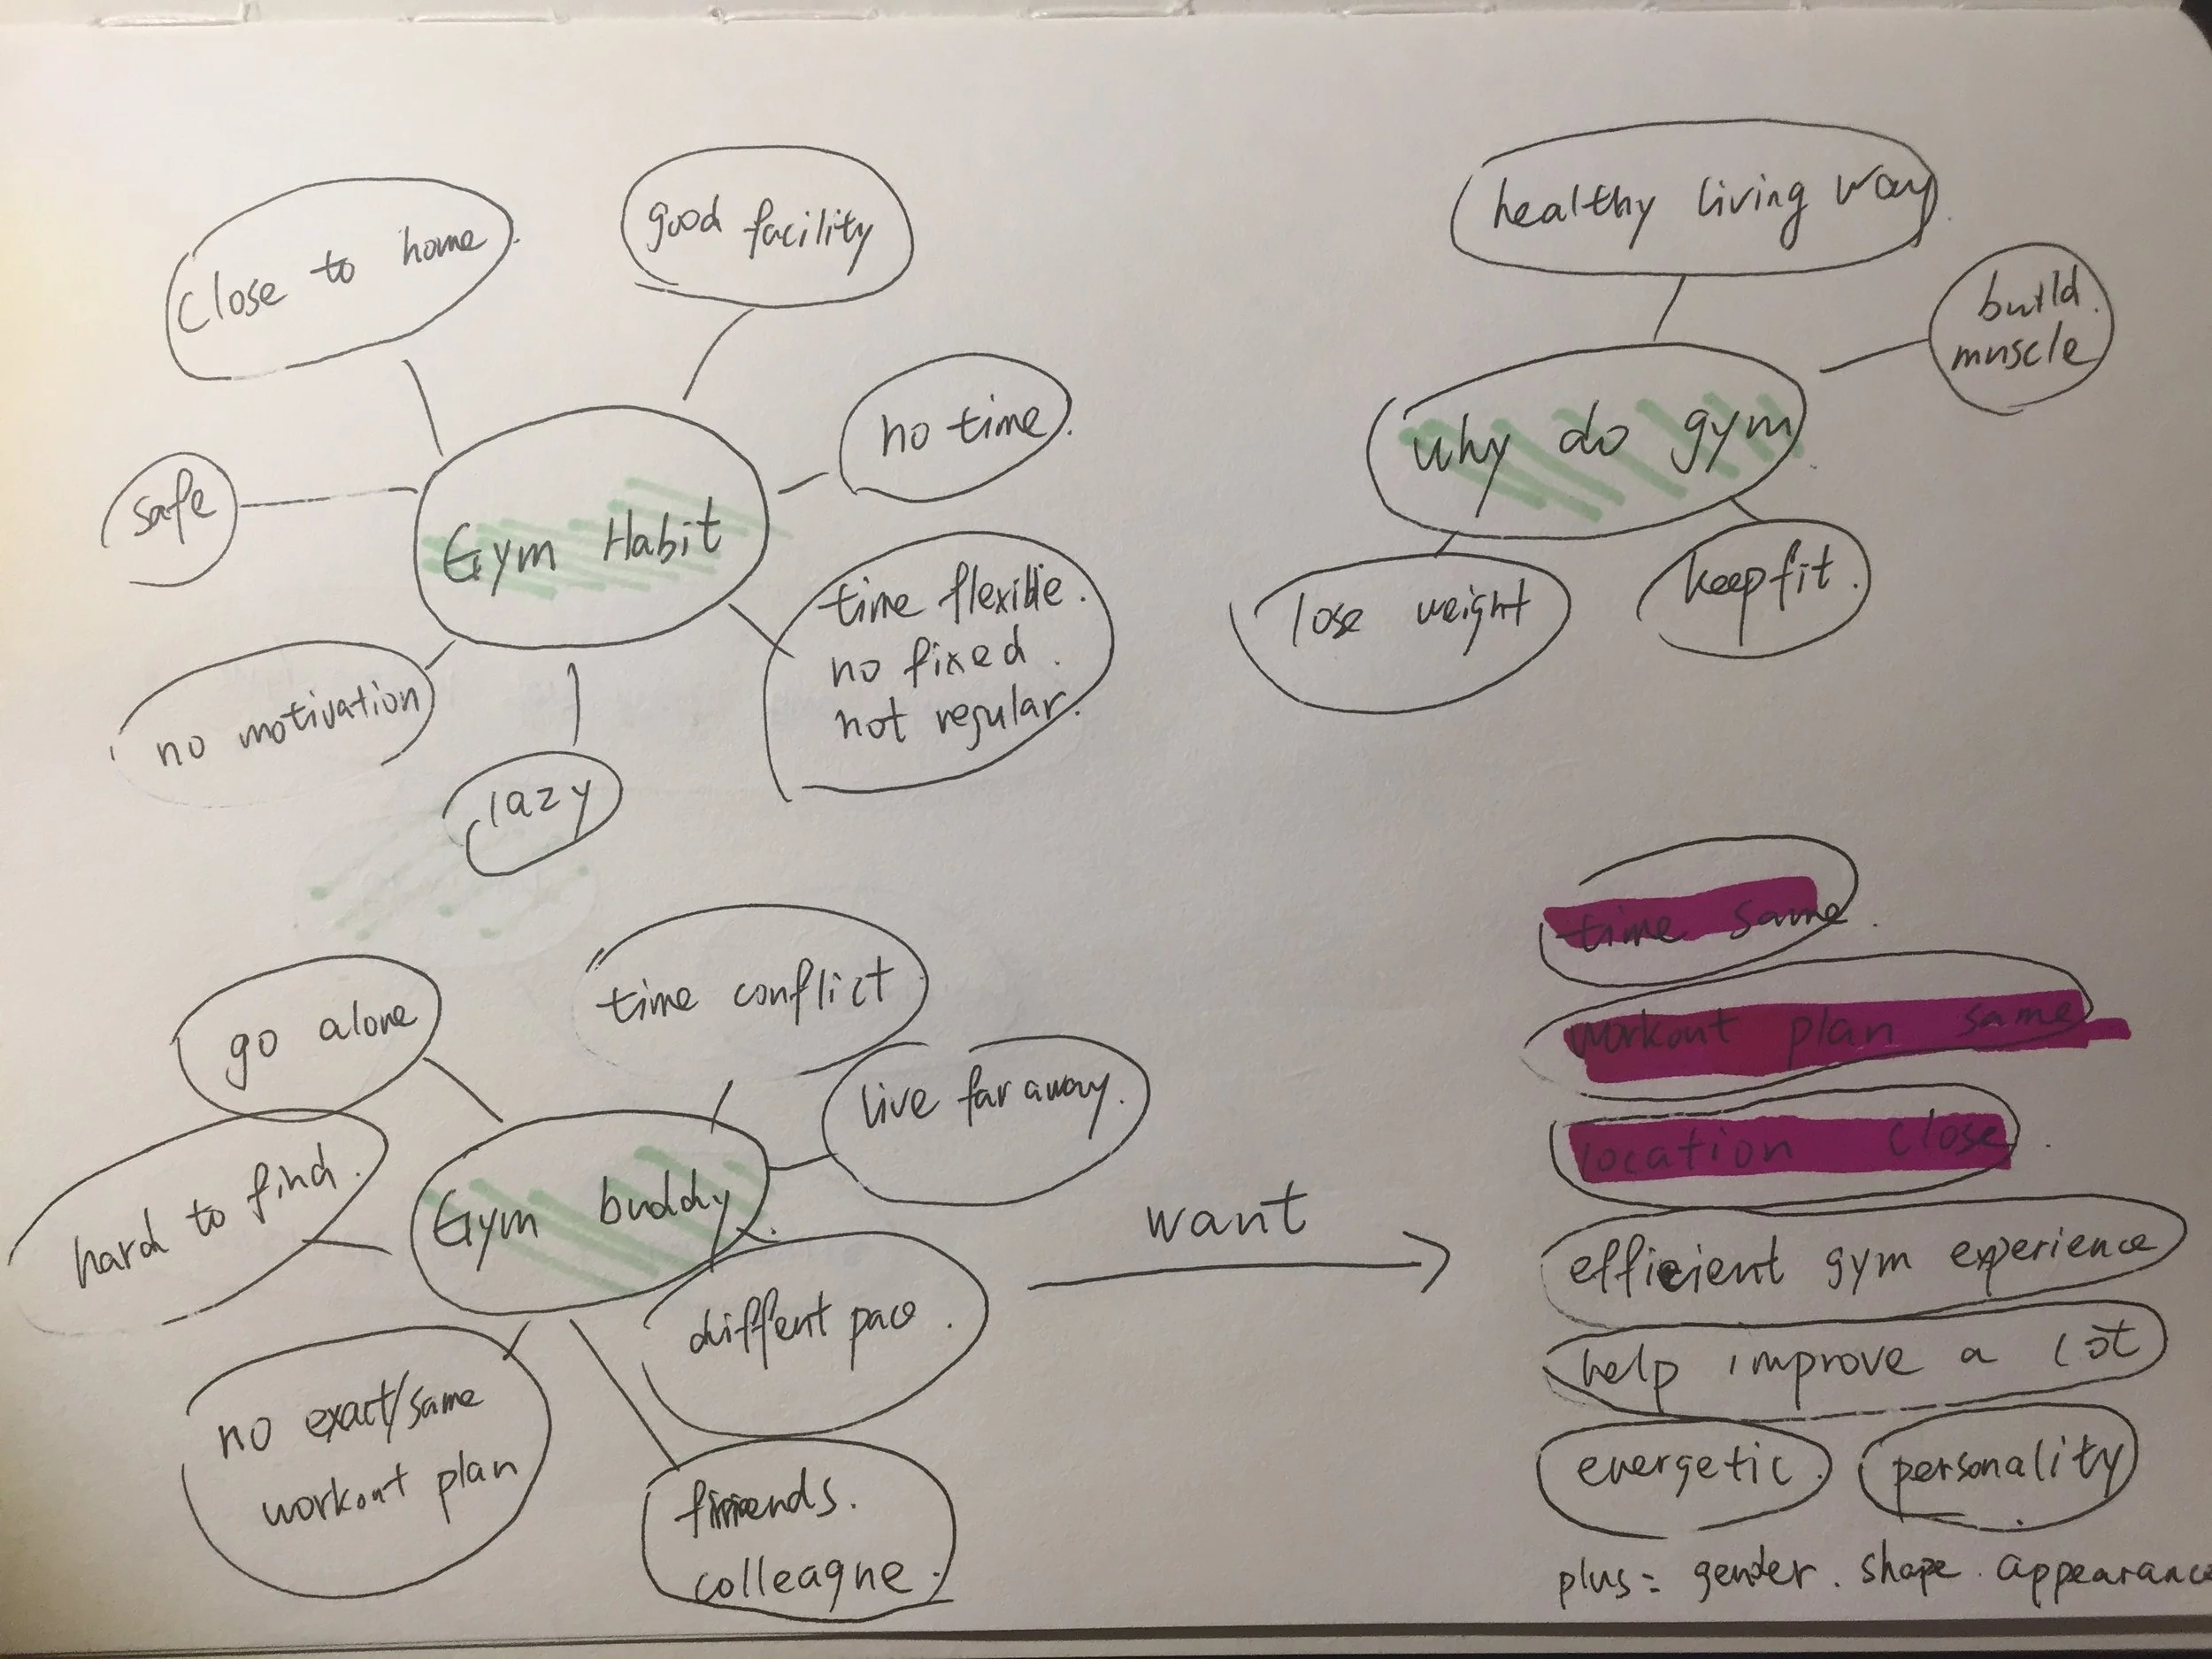 close to home.
good facility
no time.
safe
Gym Habit
time flexible.
no fixed.
not regular.
no motivation
lazy
healthy living way.
build.
muscle
why do gym
lose weight
keep fit.
go alone
time conflict
live far away.
hard to find.
Gym buddy
diffent pace.
no exact/same
workout plan
friends.
colleague.
want
time same.
workout plan same
location close.
efficient gym experience
help improve a lot
energetic.
personality
plus: gender. shape. appearance